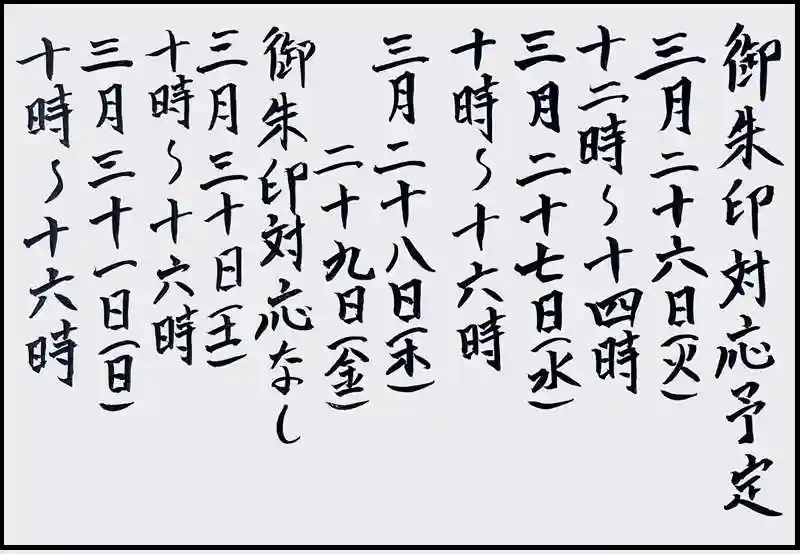 御朱印対応予定
三月二十六日(火)
十二時〜十四時
三月二十七日(水)
十時〜十六時
三月二十八日(木)
二十九日(金)
御朱印対応なし
三月三十日(土)
十時〜十六時
三月三十一日(日)
十時〜十六時